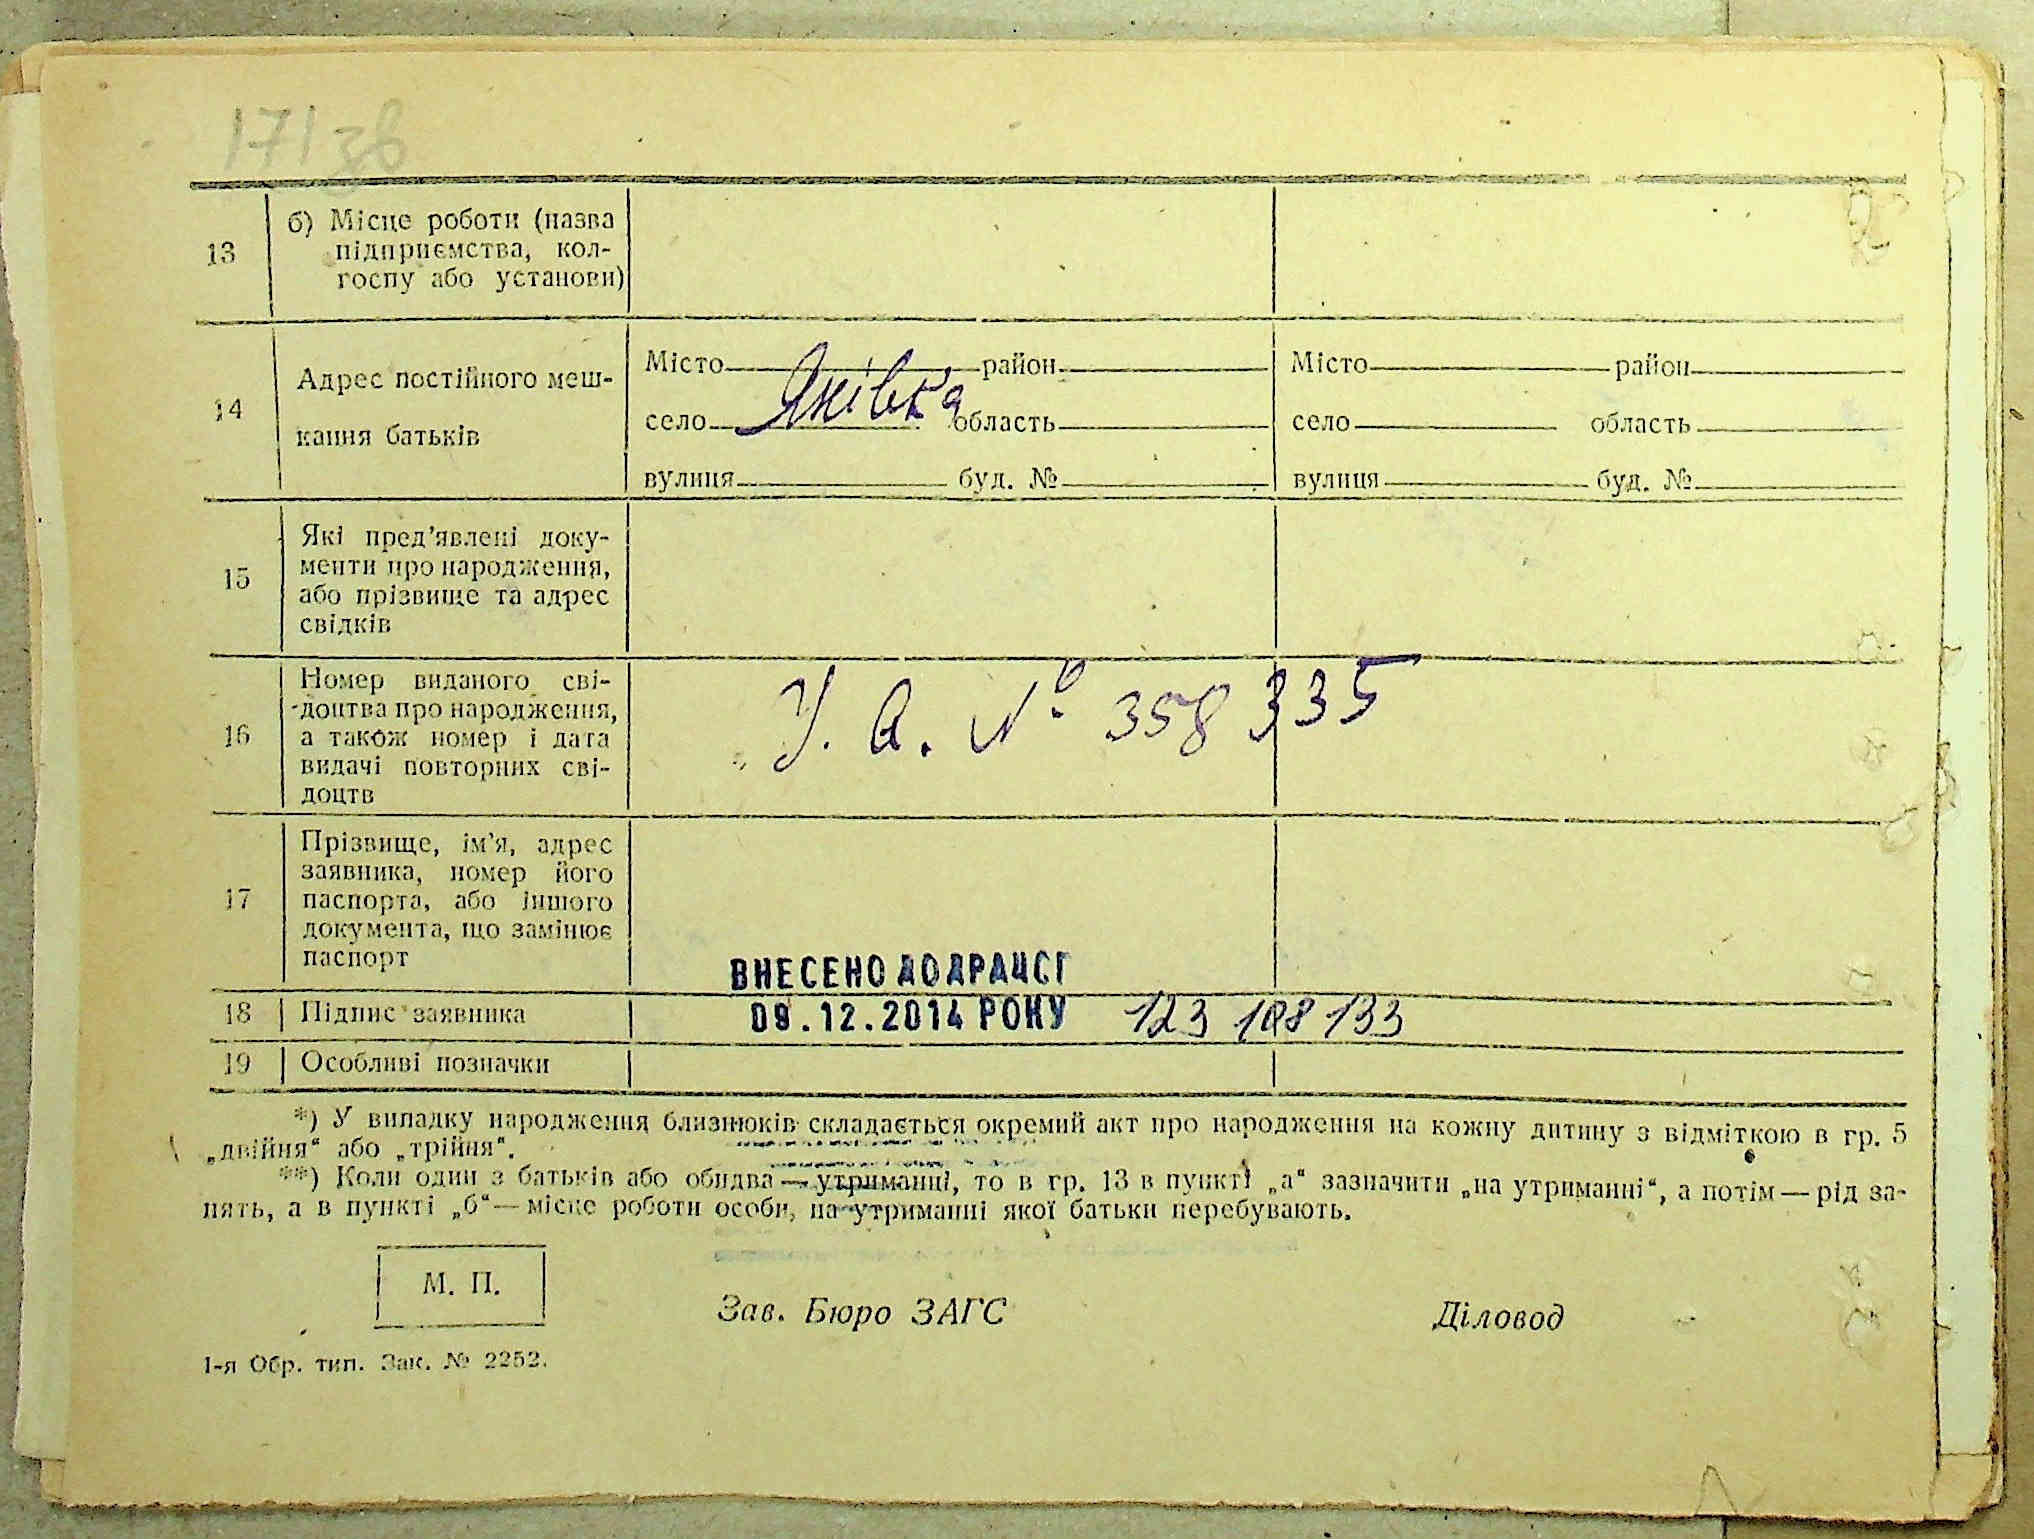 171 зв
13
б) Місце роботи (назва
підприємства, кол-
госпу або установи)
14
Адрес постійного меш-
кання батьків
Місто район
село Яківка область
вулиця буд. №
Місто район
село область
вулиця буд. №
15
Які пред’явлені доку-
менти про народження,
або прізвище та адрес
свідків
16
Номер виданого сві-
доцтва про народження,
а також номер і дата
видачі повторних сві-
доцтв
У. А. № 358 335
17
Прізвище, ім’я, адрес
заявника, номер його
паспорта, або іншого
документа, що замінює
паспорт
ВНЕСЕНО ДО ДРАЦСГ
18
Підпис заявника
09.12.2014 РОКУ 123 108 133
19
Особливі позначки
*) У випадку народження близнюків складається окремий акт про народження на кожну дитину з відміткою в гр. 5
„двійня“ або „трійня“.
**) Коли один з батьків або обидва — утриманці, то в гр. 13 в пункті „а“ зазначити „на утриманні“, а потім — рід за-
нять, а в пункті „б“ — місце роботи особи, на утриманні якої батьки перебувають.
М. П.
Зав. Бюро ЗАГС
Діловод
1-я Обр. тип. Зак. № 2252.